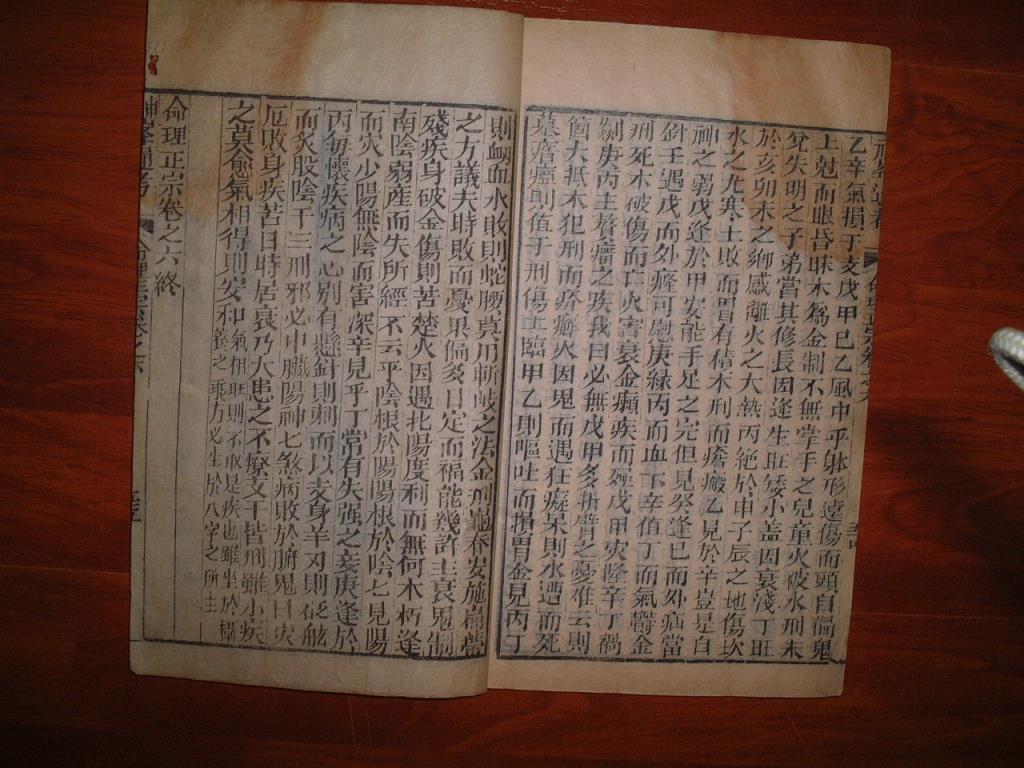 乙辛氣損于支戊甲巳乙風中乎躰形遠傷而頭自偏鬼
上尅而眼昏昧木為金制不無掌手之兒童火破水刑未
免失明之子弟當其修長因逢生旺矮小盖因衰淺丁旺
於亥卯未之鄉感離火之大熱丙絕於申子辰之地傷坎
水之尤寒土敗而胃有積木刑而瘡瘢乙見於辛豈是白
神之弱戊逢於甲安能手足之完但見癸逢巳而外痼當
針壬遇戊而外癃可慰庚緣丙而血下辛值丁而氣欝金
刑死木破傷而亡火害衰金癲疾而殛戊甲災隆辛丁禍
劇庚丙主着癆之疾我曰必無戊甲多折臂之憂難云則
簡大抵木犯刑而癌癬火因鬼而遇狂癡呆則水遭而死
墓瘡痘則值于刑傷土臨甲乙則嘔吐而損胃金見丙丁
則衂血水敗則蛇腰莫用斬
之方議夫時敗而憂果偏多日定而福能幾許主衰鬼制
殘疾身破金傷則苦楚火因遇北陽度利而無何木朽逢
南陰弱産而失所經不云乎陰根於陽陽根於陰七見陽
而災少陽無陰而害深辛見乎丁常有失强之妾庚逢於
丙每懷疾病之心別有懸針則刺而以支身羊刃則砭骸
而炙股陰干三刑邪必中臟陽神七煞病敗於腑鬼曰災
厄敗身疾苦日時居衰乃大患之不療支干皆刑雖小疾
之莫愈氣相得則安和氣相旺則不取是疾也雖坐於
養之 方必生於八字之所主
命理正宗卷之六終
神峯通考 命理正宗卷之六